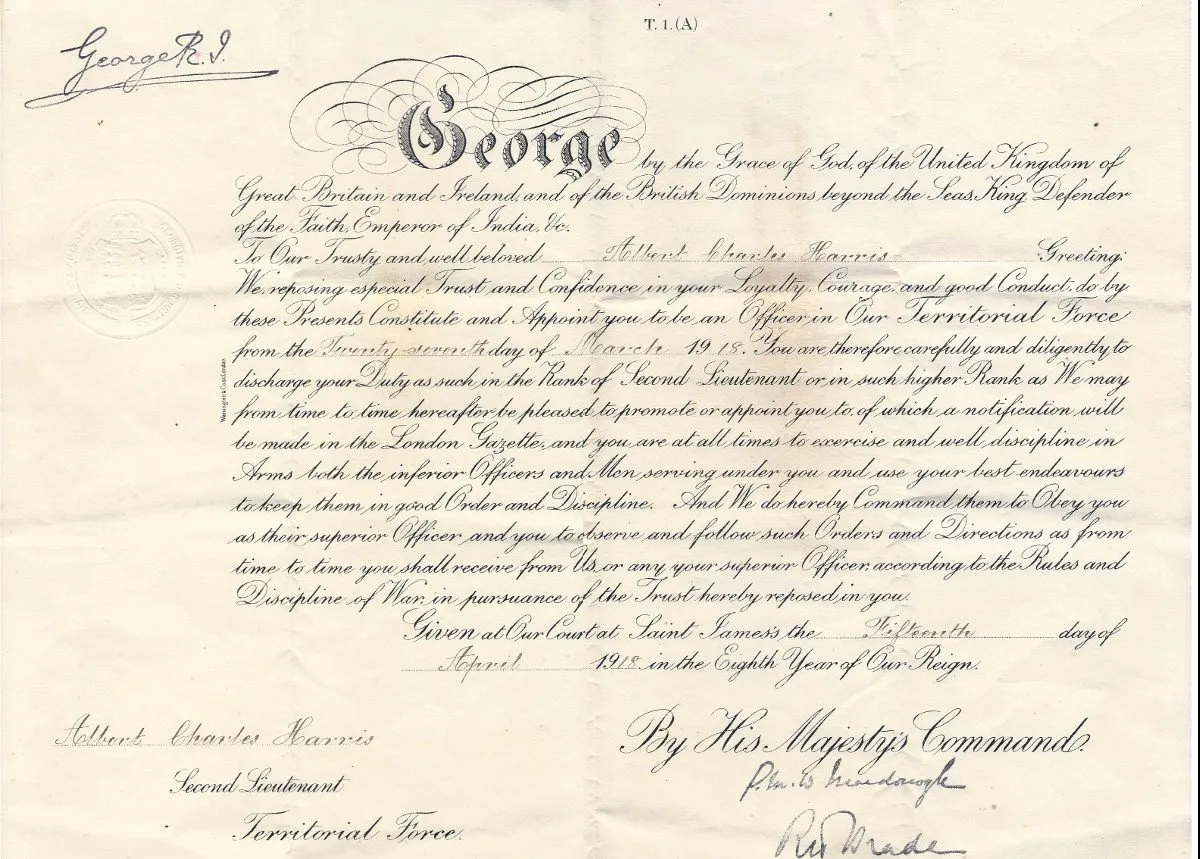 T. 1. (A)
George R. I.
George by the Grace of God, of the United Kingdom of
Great Britain and Ireland, and of the British Dominions beyond the Seas, King, Defender
of the Faith, Emperor of India, &c.
To Our Trusty and well beloved Albert Charles Harris Greeting:
We, reposing especial Trust and Confidence in your Loyalty, Courage, and good Conduct, do by
these Presents Constitute and Appoint you to be an Officer in Our Territorial Force
from the Twenty seventh day of March 1918. You are therefore carefully and diligently to
discharge your Duty as such in the Rank of Second Lieutenant or in such higher Rank as We may
from time to time hereafter be pleased to promote or appoint you to, of which a notification will
be made in the London Gazette, and you are at all times to exercise and well discipline in
Arms both the inferior Officers and Men serving under you and use your best endeavours
to keep them in good Order and Discipline. And We do hereby Command them to Obey you
as their superior Officer, and you to observe and follow such Orders and Directions as from
time to time you shall receive from Us, or any your superior Officer, according to the Rules and
Discipline of War, in pursuance of the Trust hereby reposed in you.
Given at Our Court at Saint James's the Fifteenth day of
April 1918. in the Eighth Year of Our Reign.
Albert Charles Harris
Second Lieutenant
Territorial Force.
By His Majesty's Command.